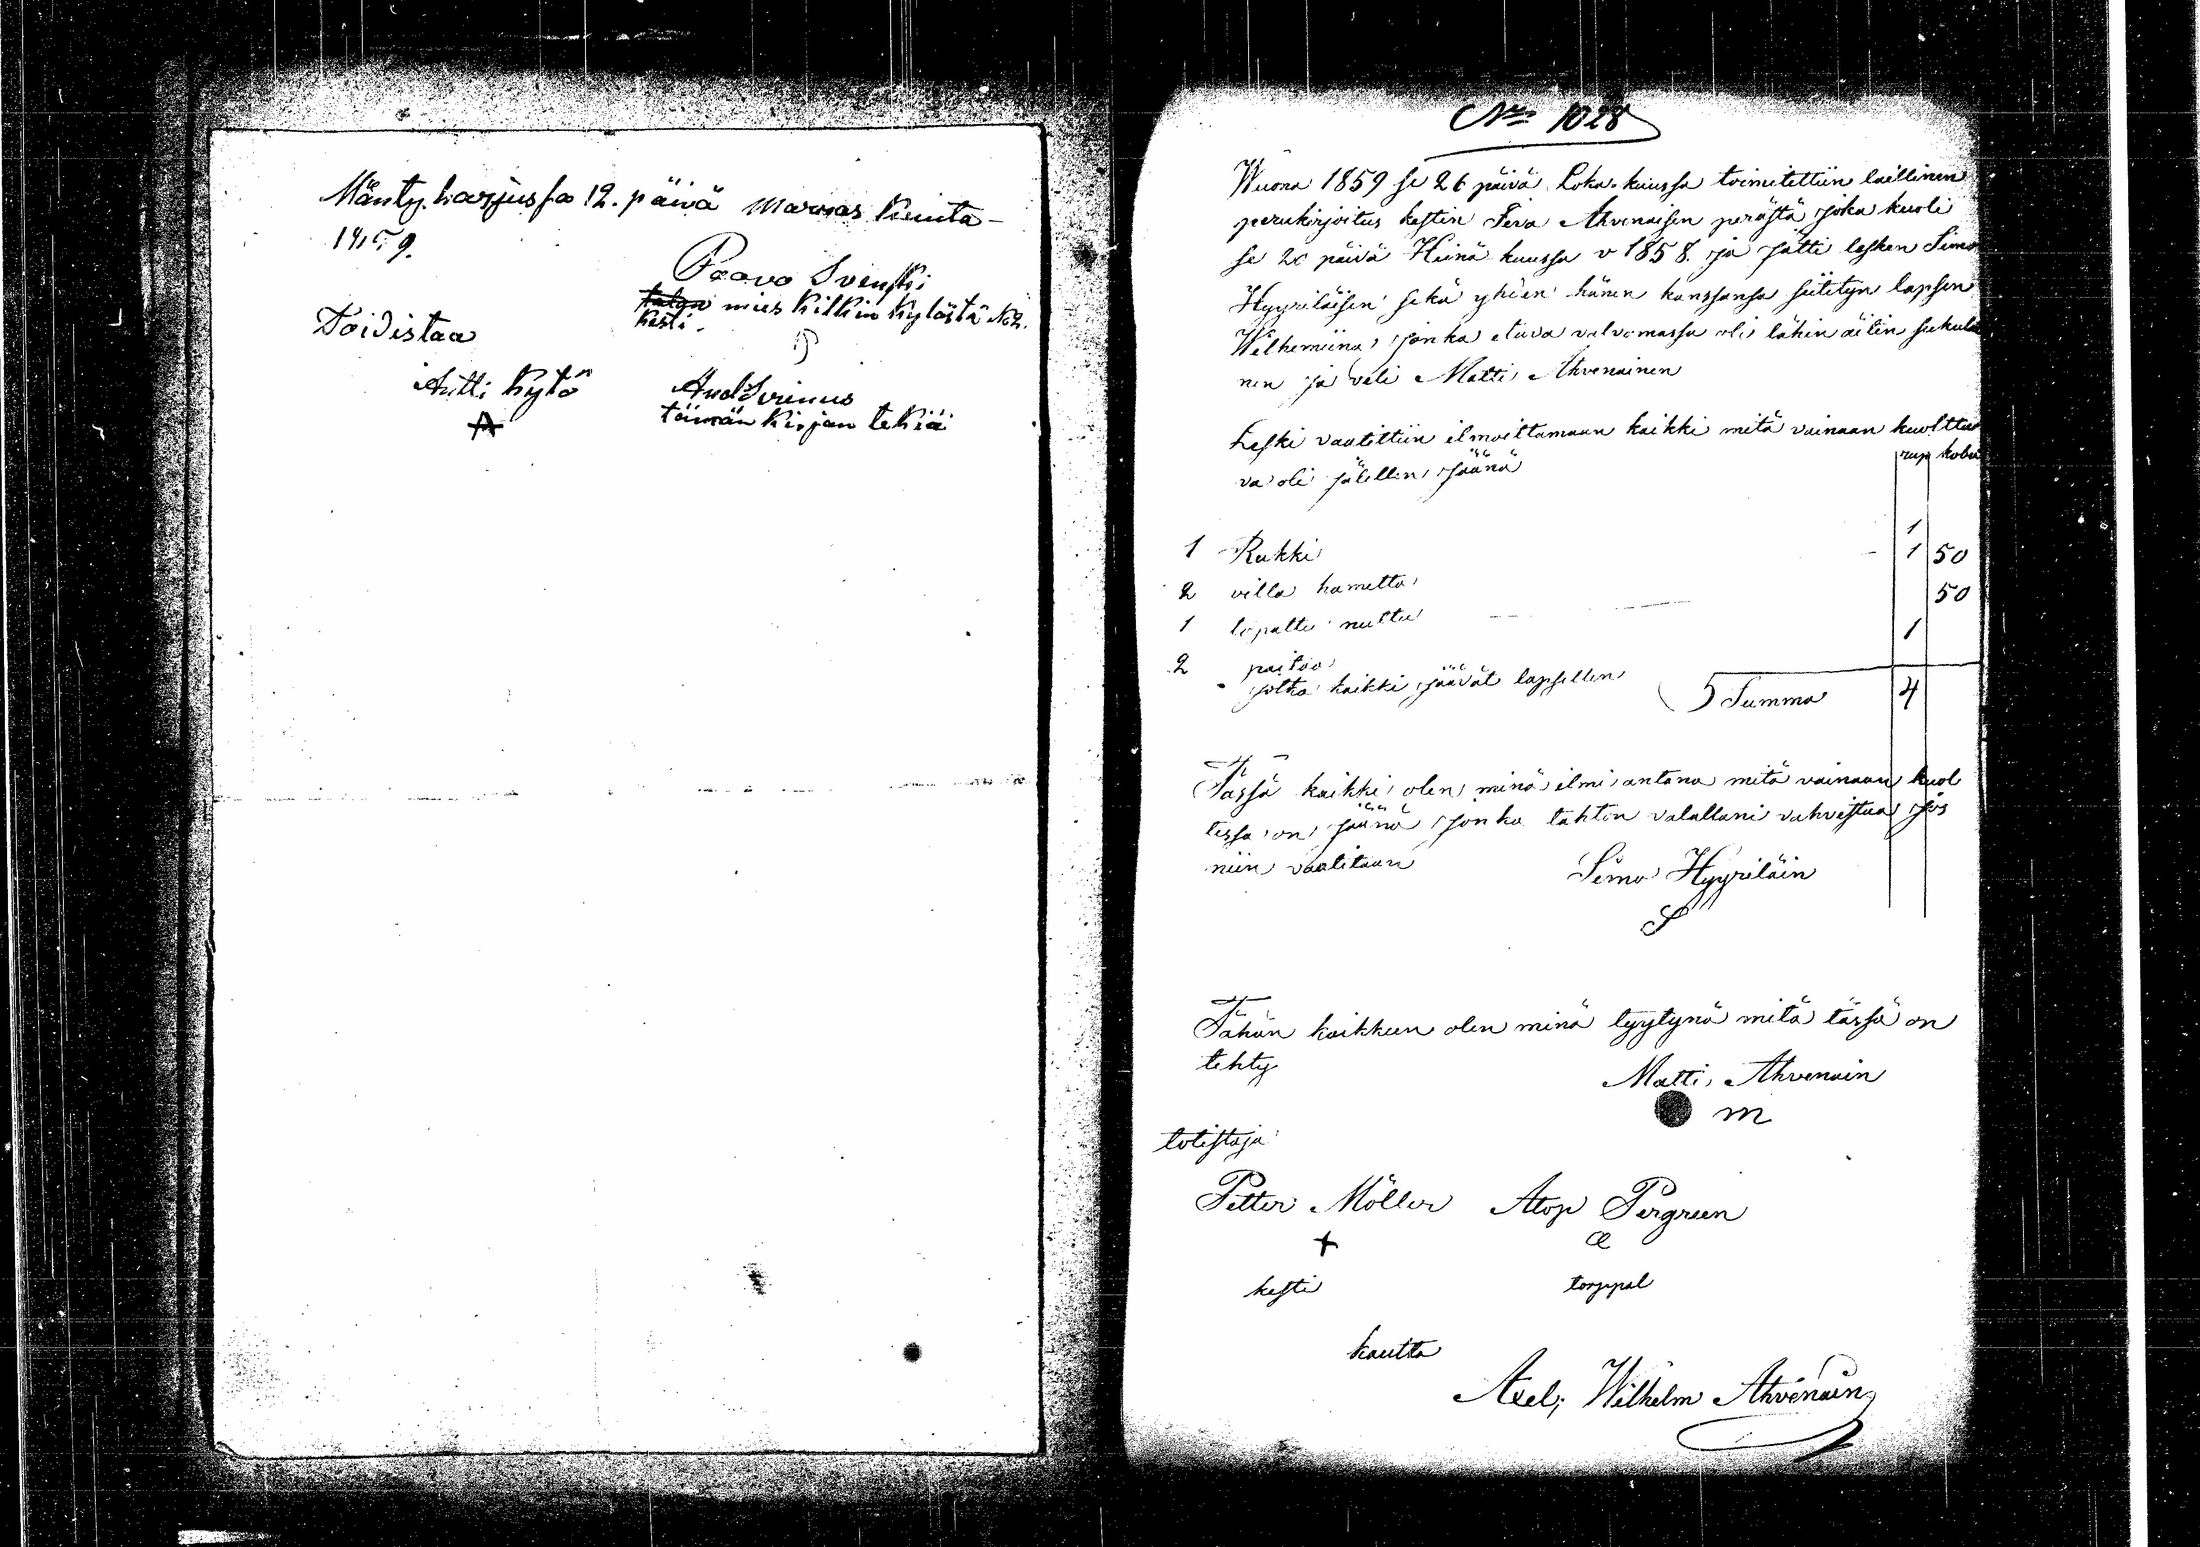 Mänty-harjussa 12. päivä marras kuuta
1859.
Paavo Svenski
talon mies Kilkin kylästä No 2.
kesti.
Todistaa
Antti Kytö
And Sirenius
tämän Kirjan tekiä
No 1028
Wuona 1859 se 26 päivä Loka-kuussa toimitettiin laillinen
perukirjoitus kestin Feva Ahvenaisen perästä joka kuoli
se 20 päivä Heinä kuussa v 1858. ja jätti lesken Simo
Hyyriläisen sekä yhden hänen kanssansa siitetyn lapsen
Wilhemiina, jonka etuva valvomassa oli lähin äitin sukulai
nen ja veli Matti Ahvenainen
Leski vaatittiin ilmoittamaan kaikki mitä vainaan kuolttua
va oli jälellen jäänä
rup kobe
1 Rukki 1
2 villa hametta 1 50
1 lopattu nuttu 50
2 paitaa 1
jotka kaikki jäävät lapsellen
S Summa 4
Tässä kaikki olen minä ilmi antana mitä vainaan kuol
tessa on jäänä jonka tahton valallani vahvistaa jos
niin vaatitaan
Simo Hyyriläin
S
Tähän kaikkeen olen minä tyytynä mitä tässä on
tehty
Matti Ahvenain
m
totistaja
Petter Möller Atop Pergreen
+ æ
kesti torppal
kautta
Axel, Wilhelm Ahvenain